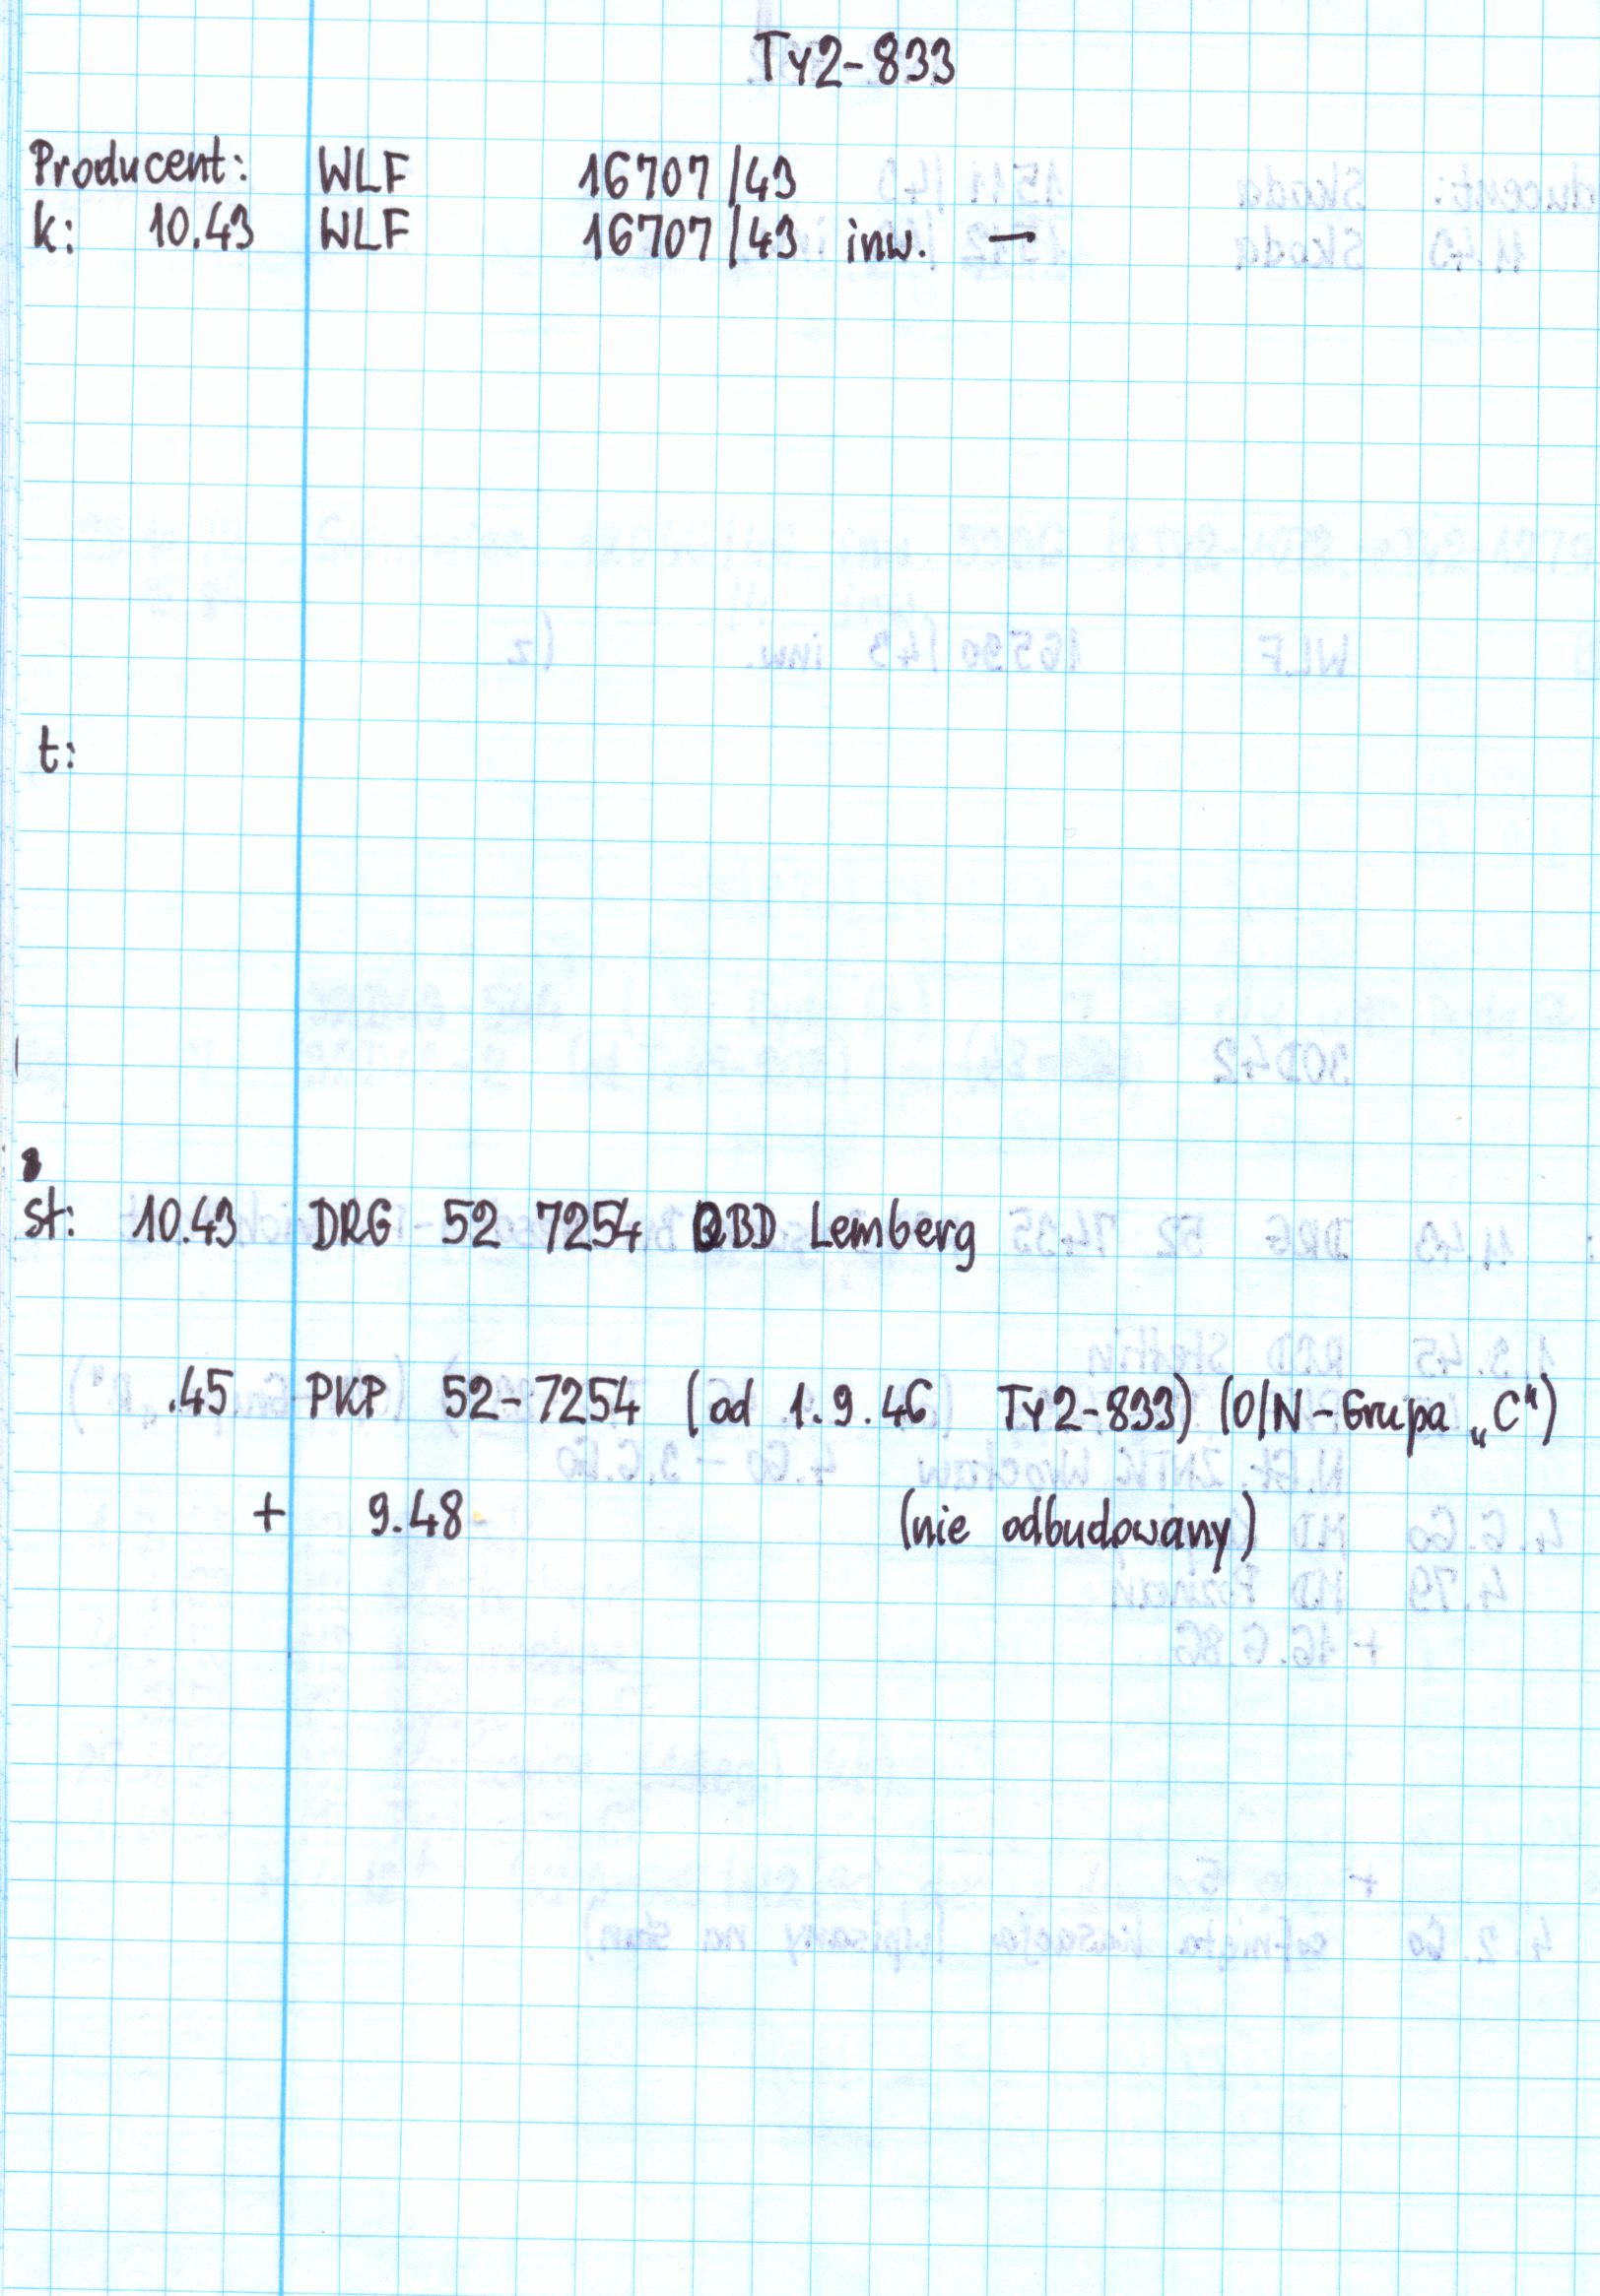 Ty2-833
Producent: WLF 16707/43
k: 10.43 WLF 16707/43 inw. —
t:
st: 10.43 DRG 52 7254 OBD Lemberg
.45 PKP 52-7254 (od 1.9.46 Ty2-833) (O/N-Grupa „C")
+ 9.48 (nie odbudowany)